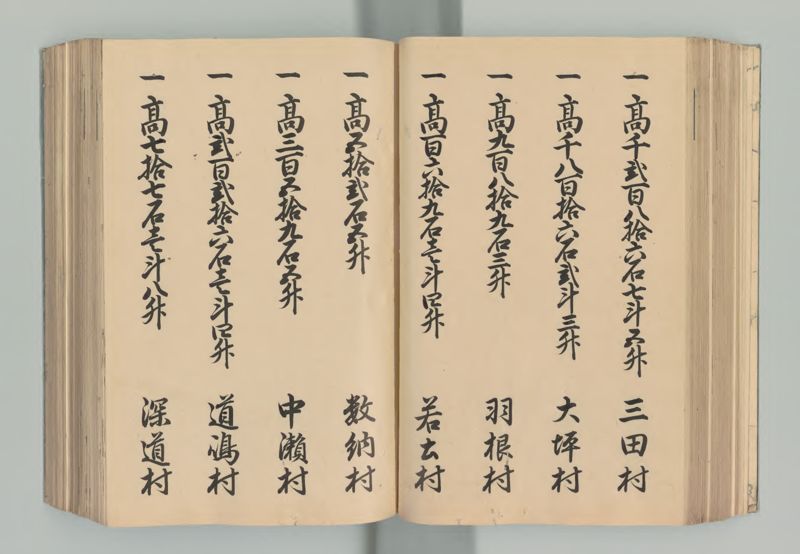 一 高千弐百八拾六石七斗五升 三田村
一 高千八百拾六石弐斗三升 大坪村
一 高九百八拾九石三升 羽根村
一 高百六拾九石壱斗四升 若土村
一 高五拾弐石五升 数納村
一 高三百五拾九石五升 中瀬村
一 高弐百弐拾六石壱斗四升 道嶋村
一 高七拾七石壱斗八升 深道村